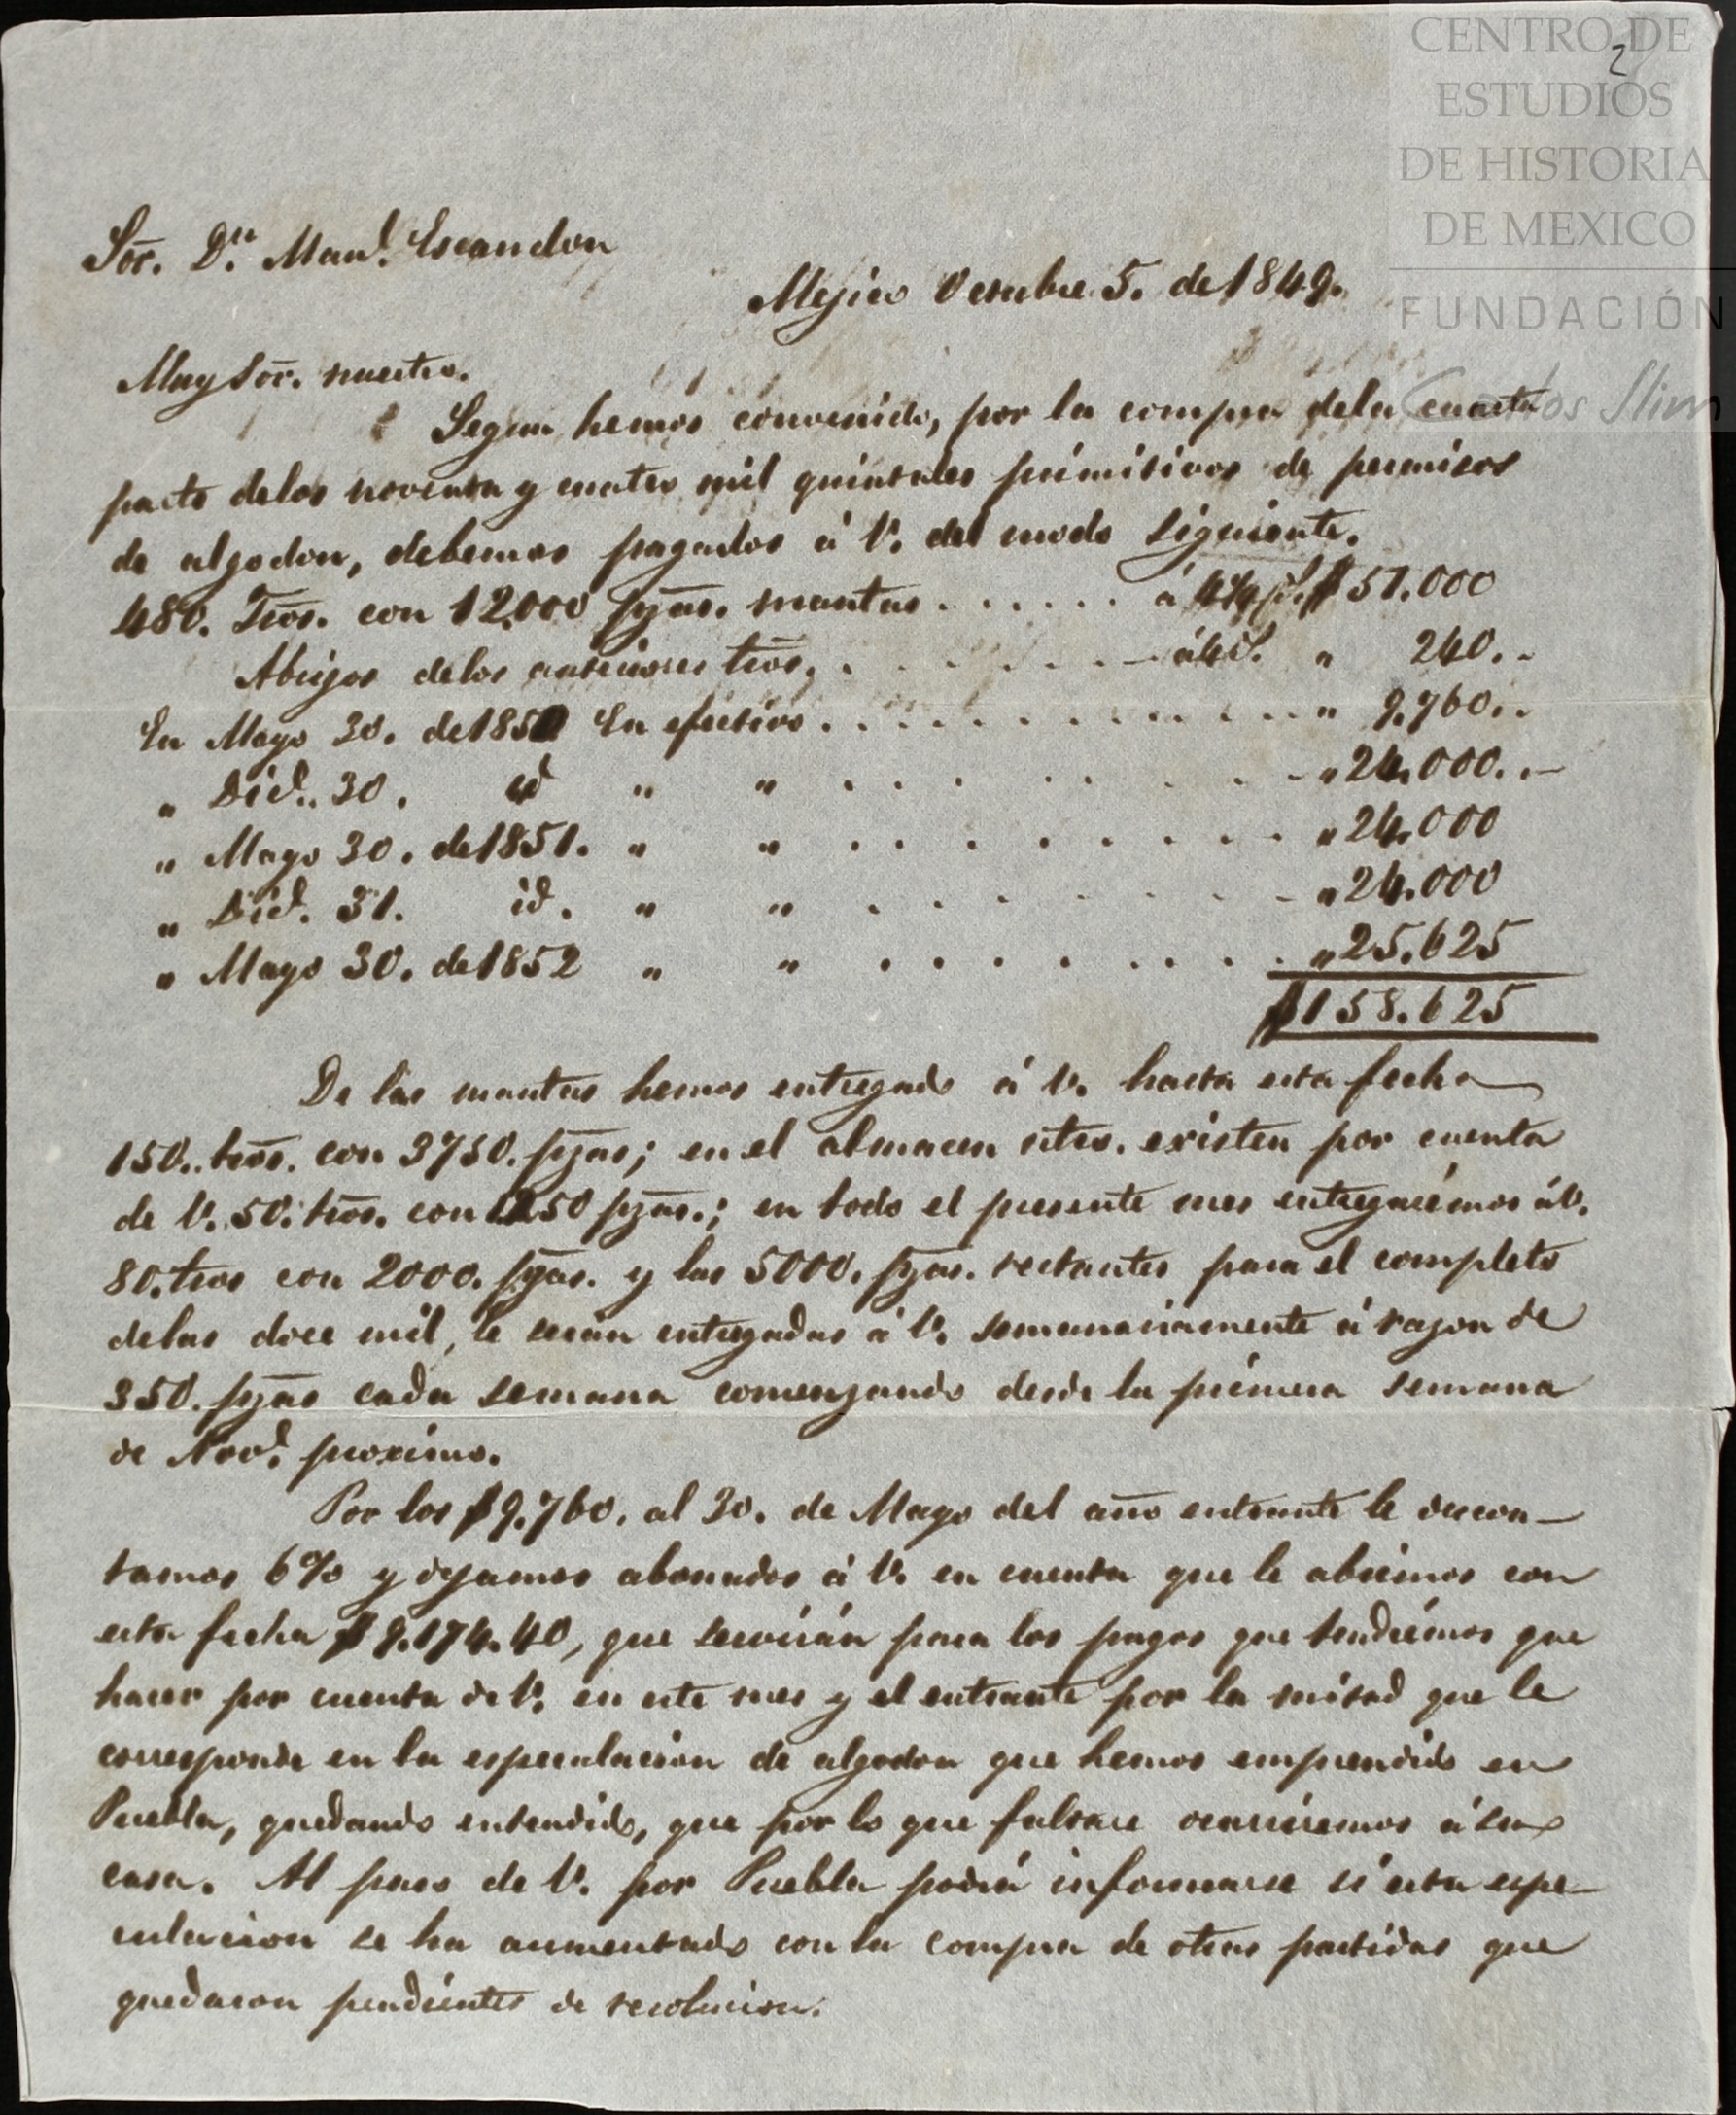 CENTRO DE
ESTUDIOS
DE HISTORIA
DE MEXICO
FUNDACIÓN
Carlos Slim
2
Sōr. Dn. Manl. Escandon
Mejico Octubre 5. de 1849.
Muy Sōr. nuestro.
Segun hemos convenido, por la compra dela cuarta
parte delos noventa y cuatro mil quintales primitivos de permisos
de algodon, debemos pagarlos á V. del modo siguiente.
480. Tēos. con 12.000 pzās. mantas . . . . . . á 4¼ p. $ 51.000
Abrigos delos anteriores tēos. . . . . . . á 4 r. " 240. "
En Mayo 30. de 1850 En efectivo . . . . . . . . . . " 9.760. "
" Dice. 30. id " " . . . . . . . " 24.000. "
" Mayo 30. de 1851. " " . . . . . . . . " 24.000
" Dice. 31. id. " " . . . . . . . " 24.000
" Mayo 30. de 1852 " " . . . . . . . . " 25.625
$158.625
De las mantas hemos entregado á V. hasta esta fecha
150. tēos. con 3750. pzas; en el almacen ntro. existen por cuenta
de V. 50. tēos. con 1250 pzās.; en todo el presente mes entregarémos á V.
80. teos con 2000. pzās. y las 5000. pzās. restantes para el completo
delas doce mil, le serán entregadas á V. semanariamente á razon de
350. pzās cada semana comenzando desde la primera semana
de Nove. proximo.
Por los $9.760. al 30. de Mayo del año entrante le descon-
tamos 6% y dejamos abonados á V. en cuenta que le abrimos con
esta fecha $9.174.40, que servirán para los pagos que tendrémos que
hacer por cuenta de V. en este mes y el entrante por la mitad que le
corresponde en la especulacion de algodon que hemos emprendido en
Puebla, quedando entendido, que por lo que faltare ocurriremos á su
casa. Al paso de V. por Puebla podrá informarse si esta espe-
culacion se ha aumentado con la compra de otras partidas que
quedaron pendientes de resolucion.